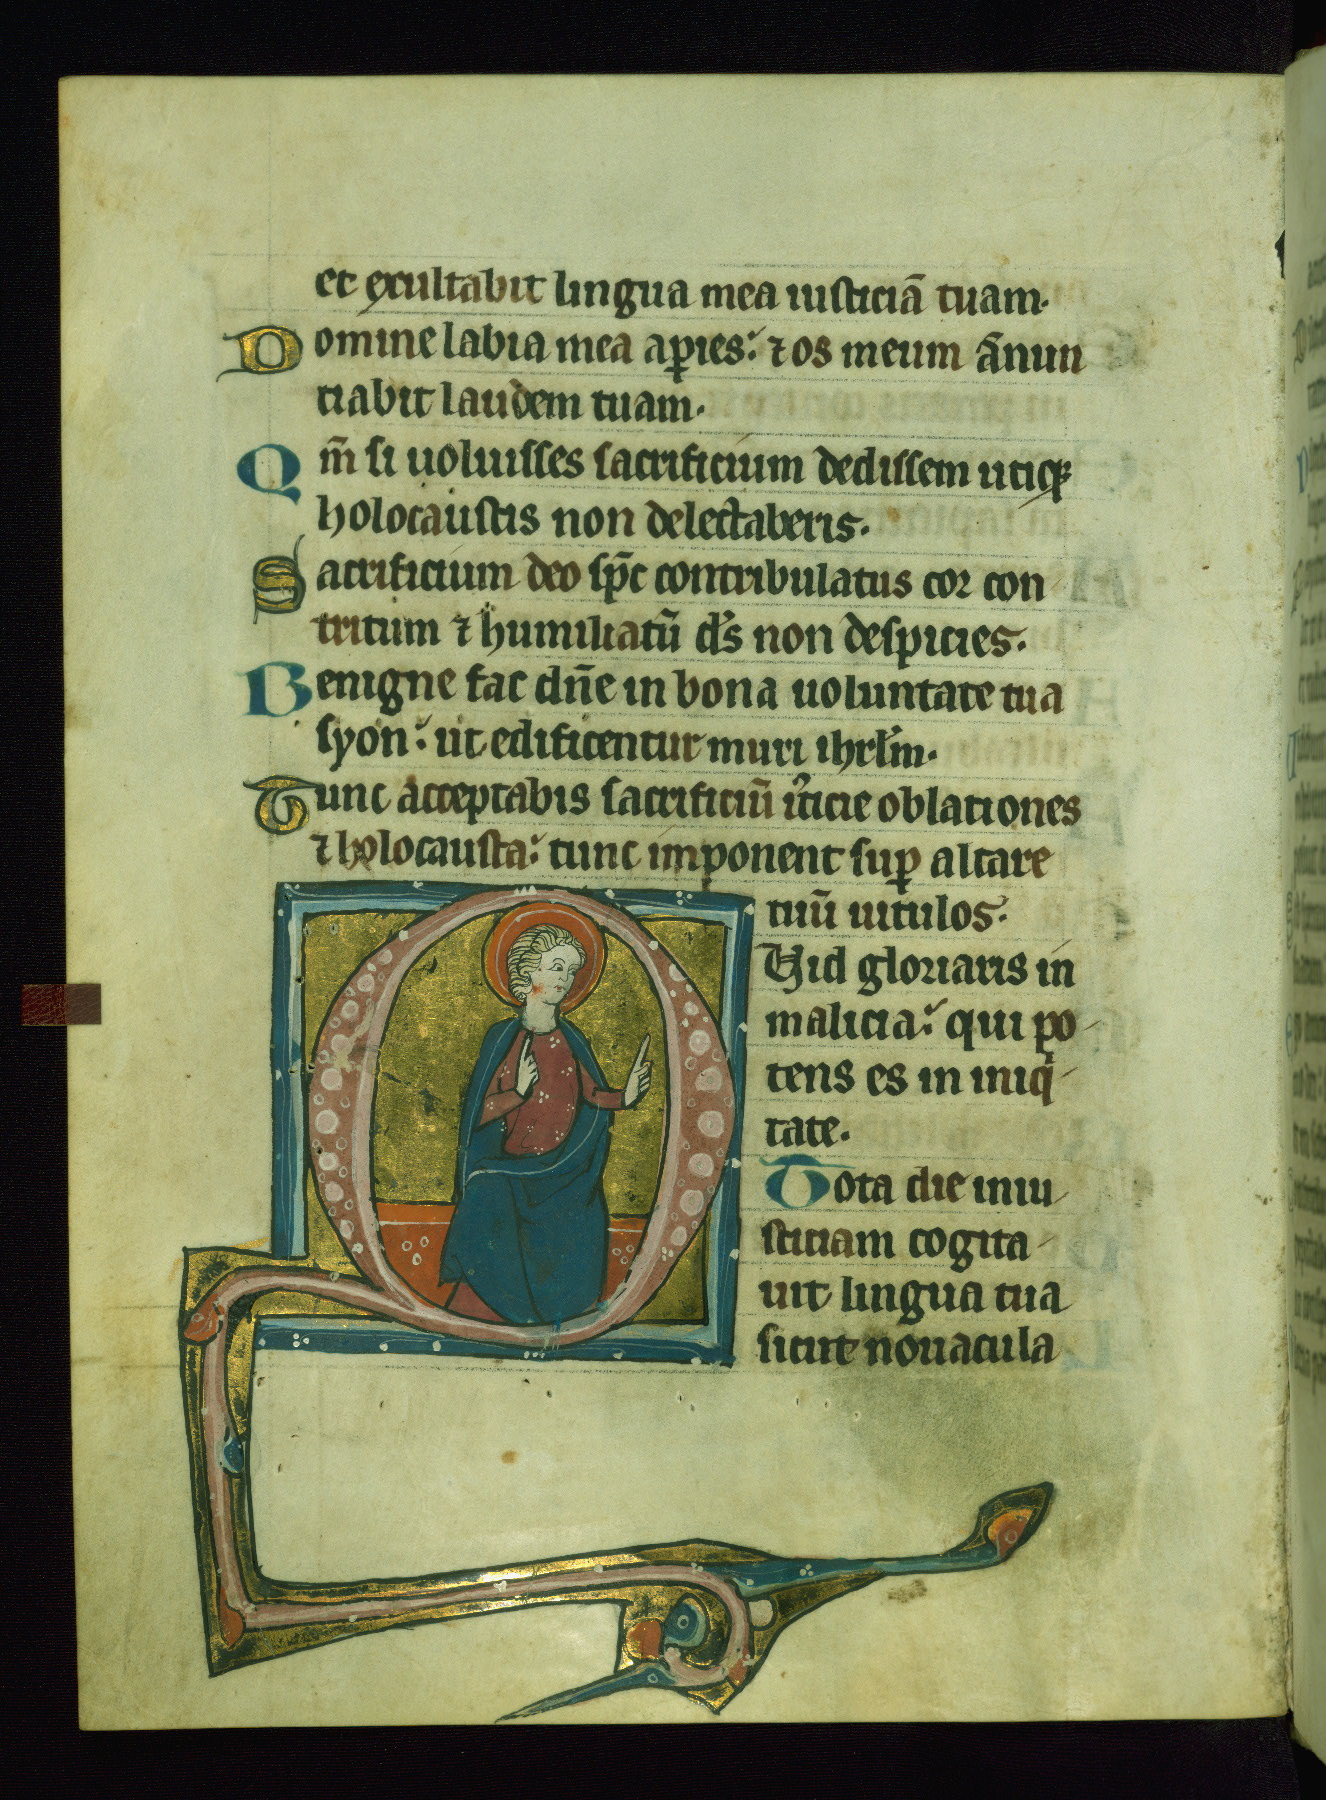 et exultabit lingua mea iusticiā tuam.
Domine labia mea aꝑies: ⁊ os meum ānun
tiabit laudem tuam.
Qm̄ si uoluisses sacrificium dedissem utiqꝫ
holocaustis non delectaberis.
Sacrificium deo sp̄c contribulatus cor con
tritum ⁊ humiliatū ds̄ non despicies.
Benigne fac dn̄e in bona uoluntate tua
syon: ut edificentur muri ihrl̄m.
Tunc acceptabis sacrificiū iᷤticie oblationes
⁊ holocausta: tunc imponent suꝑ altare
tuū uitulos.
QUid gloriaris in
malicia: qui po
tens es in iniqͥ
tate.
Tota die iniu
sticiam cogita
uit lingua tua
sicut nouacula